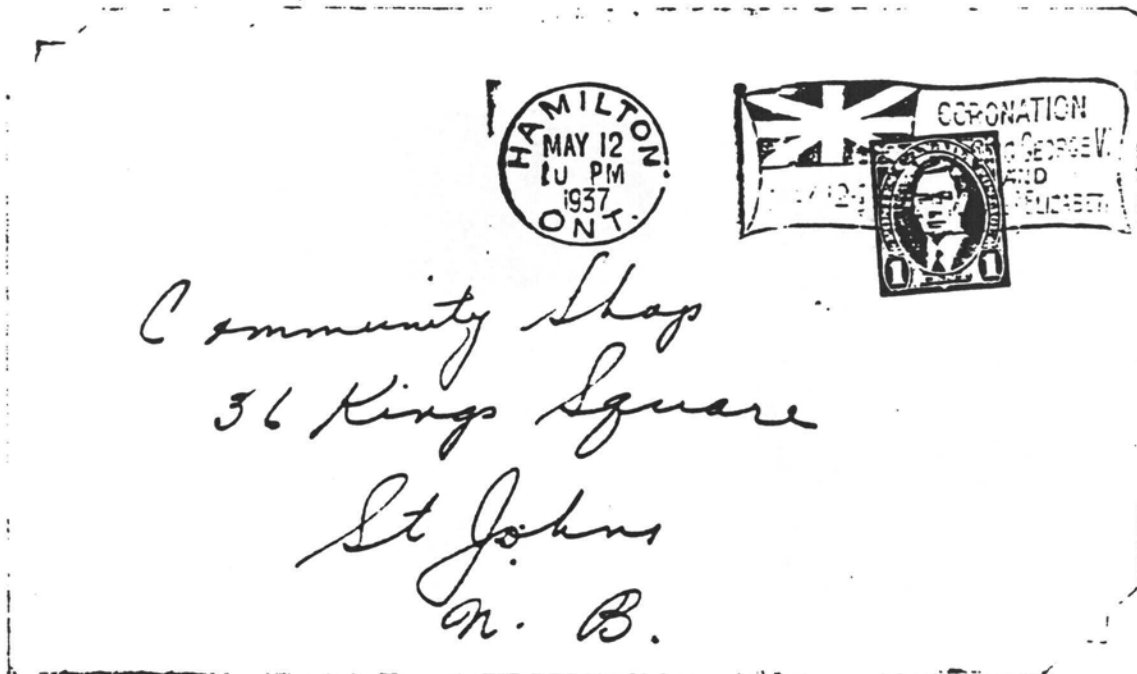 HAMILTON
MAY 12
10 PM
1937
ONT.
CORONATION
GEORGE V
AND
ELIZABETH
1 1
Community Shop
36 Kings Square
St Johns
N. B.